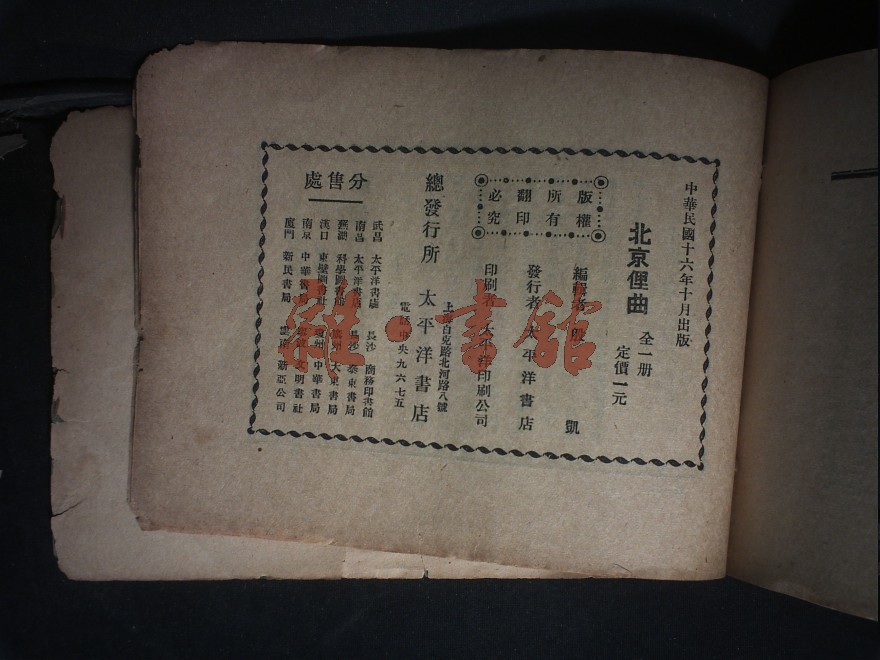 中華民國十六年十月出版
北京俚曲
全一册
定價一元
版權
所有
翻印
必究
編輯者 殷 凱
發行者 太平洋書店
印刷者 太平洋印刷公司
上海白克路北河路八號
總發行所 太平洋書店
電話中央九六七五
分售處
武昌 太平洋書店
南昌 太平洋書店
蕪湖 科學圖書館
漢口
南京 中華書局
廈門 新民書局
長沙 商務印書館
長沙 泰東書局
大東書局
州 中華書局
文明書社
新亞公司
雜·書館